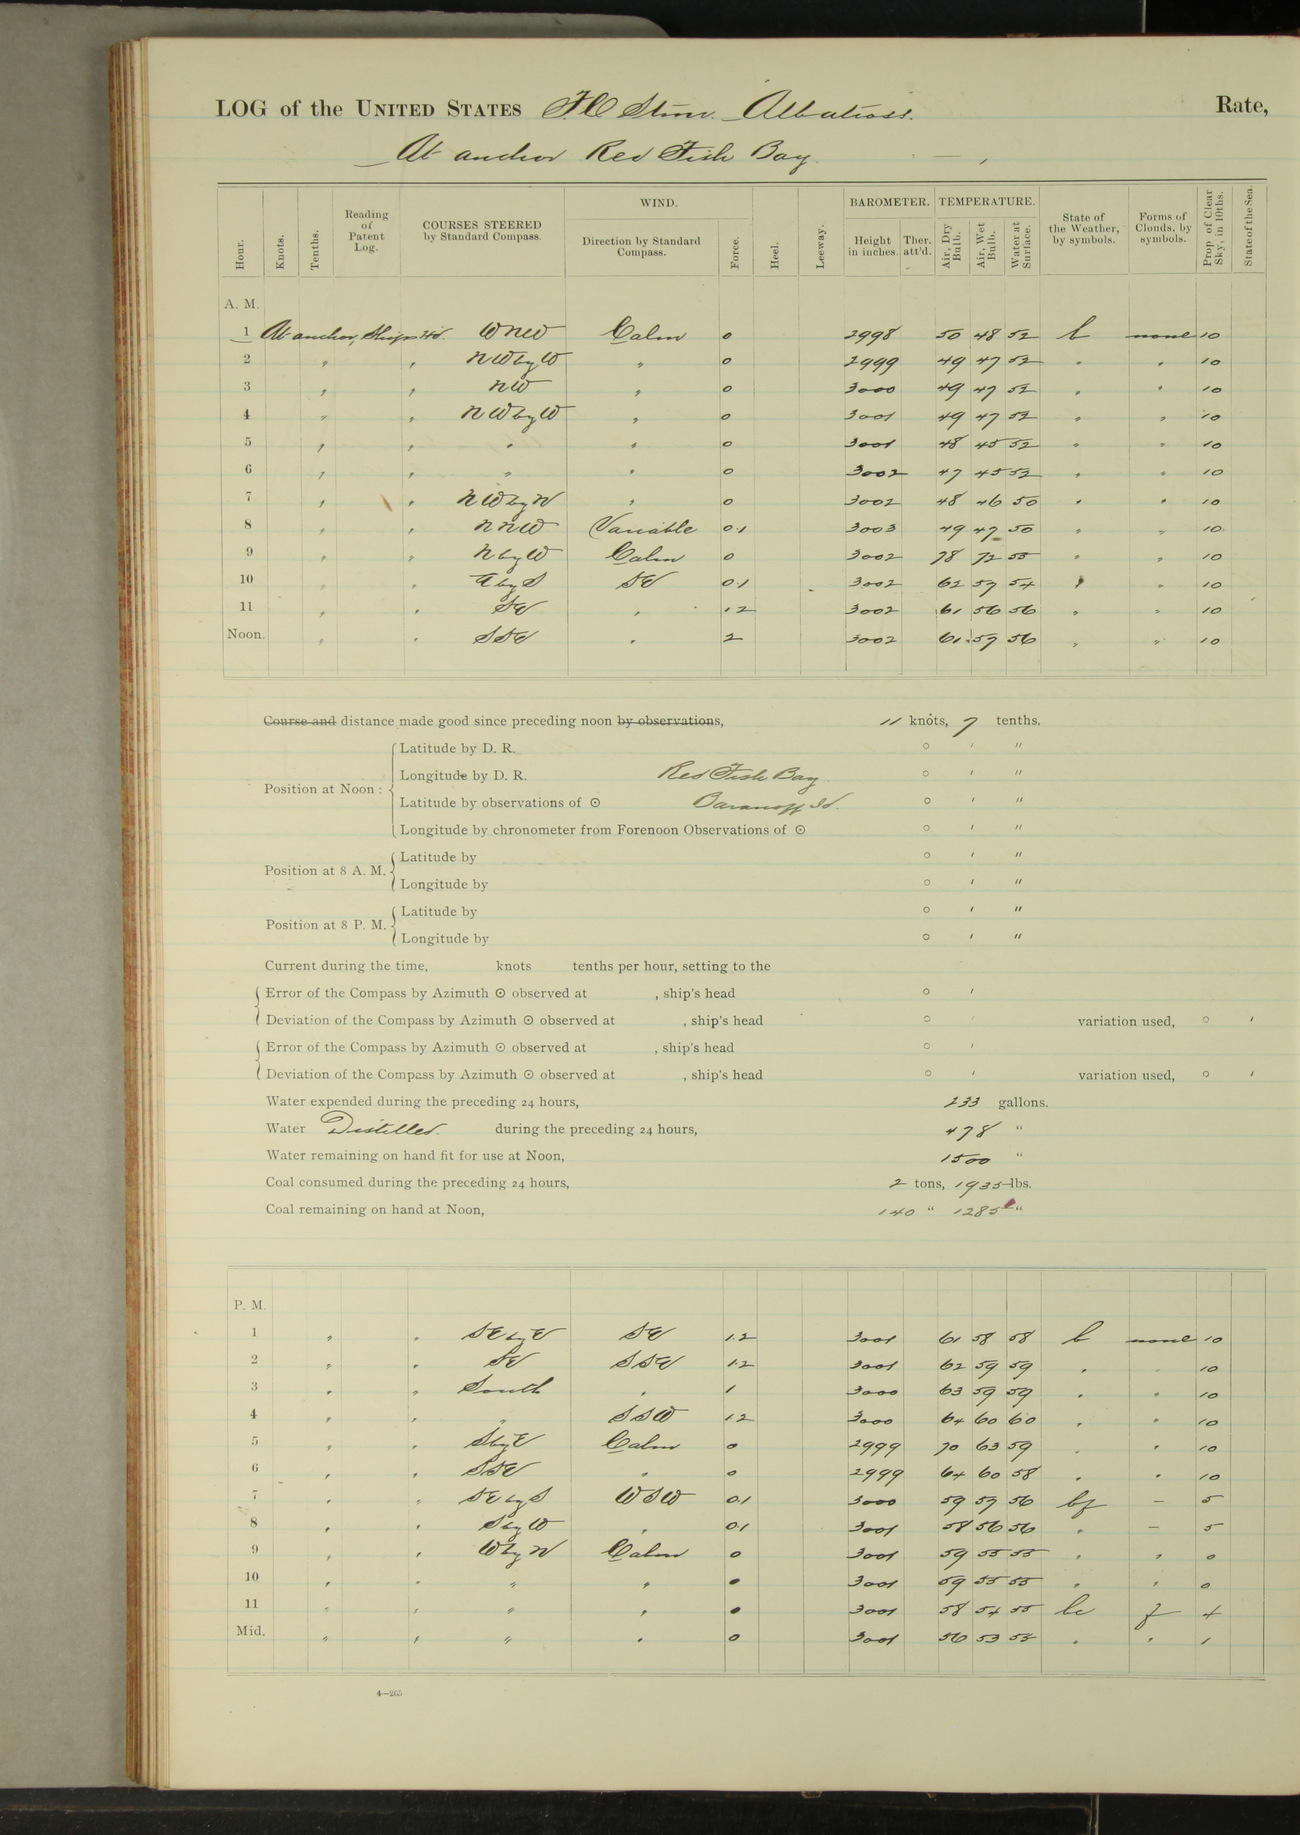 LOG of the UNITED STATES F.C. Stmr. Albatross. Rate,
At anchor Red Fish Bay.
Hour. Knots. Tenths. Reading of Patent Log. COURSES STEERED by Standard Compass. WIND. Direction by Standard Compass. Force. Heel. Leeway. BAROMETER. Height in inches. Ther. att'd. TEMPERATURE. Air, Dry Bulb. Air, Wet Bulb. Water at Surface. State of the Weather, by symbols. Forms of Clouds, by symbols. Prop. of Clear Sky, in 10ths. State of the Sea.
A. M.
1 At anchor, Ships Hd. WNW Calm 0 2998 50 48 52 b none 10
2 " " NWbyW " 0 2999 49 47 52 " " 10
3 " " NW " 0 3000 49 47 52 " " 10
4 " " NWbyW " 0 3001 49 47 52 " " 10
5 " " " " 0 3001 48 45 52 " " 10
6 " " " " 0 3002 47 45 52 " " 10
7 " " NWbyN " 0 3002 48 46 50 " " 10
8 " " NNW Variable 0.1 3003 49 47 50 " " 10
9 " " NbyW Calm 0 3002 78 72 55 " " 10
10 " " EbyS SE 0.1 3002 62 57 54 " " 10
11 " " SE " 1.2 3002 61 56 56 " " 10
Noon. " " SSE " 2 3002 61 57 56 " " 10
Course and distance made good since preceding noon by observations, 11 knots, 7 tenths.
Position at Noon :
Latitude by D. R. ° ′ ″
Longitude by D. R. Red Fish Bay ° ′ ″
Latitude by observations of ☉ Baranoff Id. ° ′ ″
Longitude by chronometer from Forenoon Observations of ☉ ° ′ ″
Position at 8 A. M.
Latitude by ° ′ ″
Longitude by ° ′ ″
Position at 8 P. M.
Latitude by ° ′ ″
Longitude by ° ′ ″
Current during the time, knots tenths per hour, setting to the
Error of the Compass by Azimuth ☉ observed at , ship's head ° ′
Deviation of the Compass by Azimuth ☉ observed at , ship's head ° ′ variation used, ° ′
Error of the Compass by Azimuth ☉ observed at , ship's head ° ′
Deviation of the Compass by Azimuth ☉ observed at , ship's head ° ′ variation used, ° ′
Water expended during the preceding 24 hours, 233 gallons.
Water Distilled. during the preceding 24 hours, 478 "
Water remaining on hand fit for use at Noon, 1500 "
Coal consumed during the preceding 24 hours, 2 tons, 1935 lbs.
Coal remaining on hand at Noon, 140 " 1285 "
P. M.
1 " " SEbyE SE 1.2 3001 61 58 58 b none 10
2 " " SE SSE 1.2 3001 62 59 59 " " 10
3 " " South " 1 3000 63 59 59 " " 10
4 " " " SSW 1.2 3000 64 60 60 " " 10
5 " " SbyE Calm 0 2999 70 63 59 " " 10
6 " " SSE " 0 2999 64 60 58 " " 10
7 " " SEbyS WSW 0.1 3000 59 57 56 bf – 5
8 " " SbyW " 0.1 3001 58 56 56 " – 5
9 " " WbyN Calm 0 3001 59 55 55 " " 0
10 " " " " 0 3001 59 55 55 " " 0
11 " " " " 0 3001 58 54 55 bc 4
Mid. " " " " 0 3001 56 53 55 " " 1
4—265